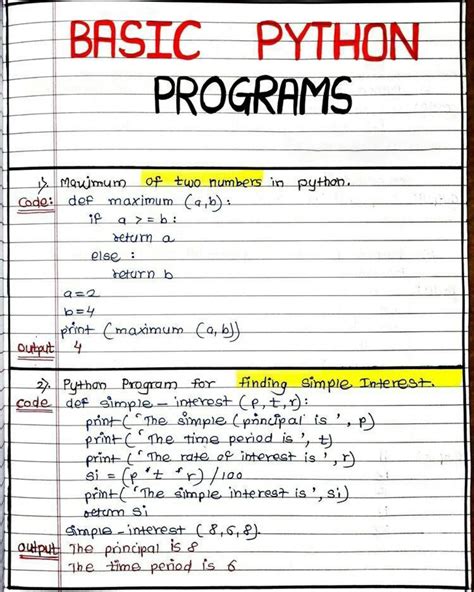 BASIC PYTHON
PROGRAMS
1). Maximum of two numbers in python.
Code: def maximum (a,b):
if a >= b:
return a
else :
return b
a=2
b=4
print (maximum (a,b))
output 4
2). Python Program for finding Simple Interest.
code def simple-interest (p,t,r):
print('The simple (principal is', p)
print('The time period is', t)
print('The rate of interest is', r)
si = (p * t * r) / 100
print('The simple interest is', si)
return si
simple-interest (8,6,8).
output The principal is 8
The time period is 6